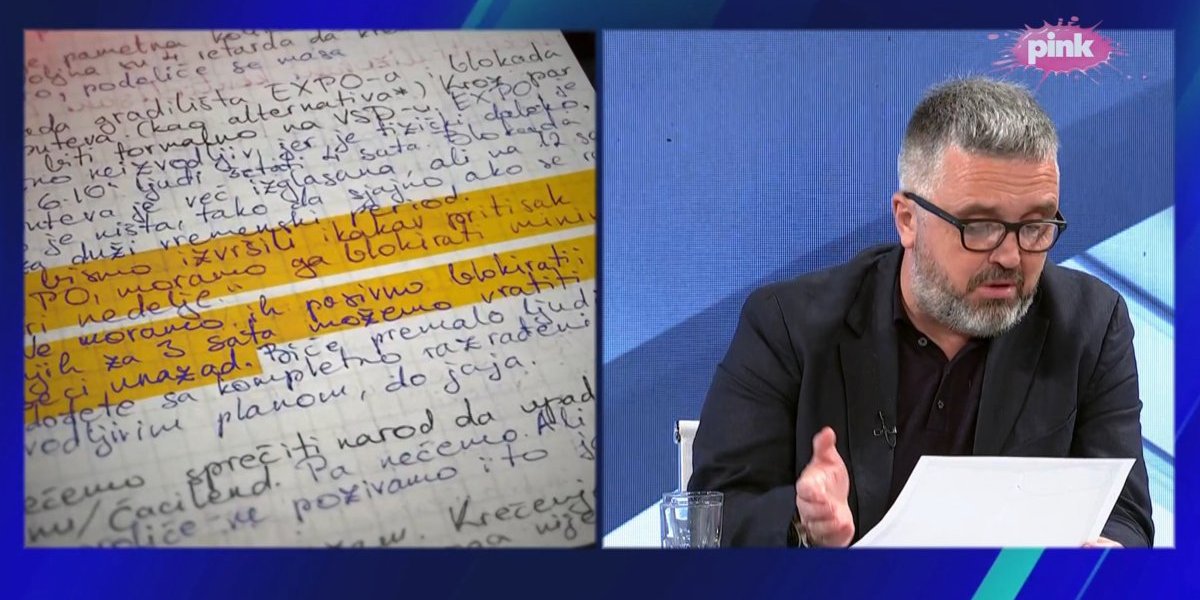 pametna
su 4 retarda da
podeliće se masa
gradilišta EXPO-a i blokada
puteva (kao alternativa*) Kroz par
biti formalno na VSP-u. EXPO je
neizvodljiv, jer je fizički daleko,
6.10. ljudi šetati 4 sata. Blokada
puteva je već izglasana, ali na 12 sa
je ništa, tako da sjajno ako se
za duži vremenski period.
bismo izvršili ikakav pritisak
PO, moramo ga blokirati
ri nedelje.
moramo ih pasivno blokirati;
njih za 3 sata možemo vratiti
unazad. Biće premalo ljud
dođete sa kompletno razrađeni
vodljivim planom, do jaja.
ećemo sprečiti narod da upad
/Ćacilend. Pa nećemo. Ali
ne pozivamo i to
Krečenje
pink